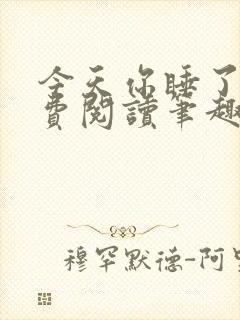 今天你睡了
費閱讀筆趣
穆罕默德-阿里